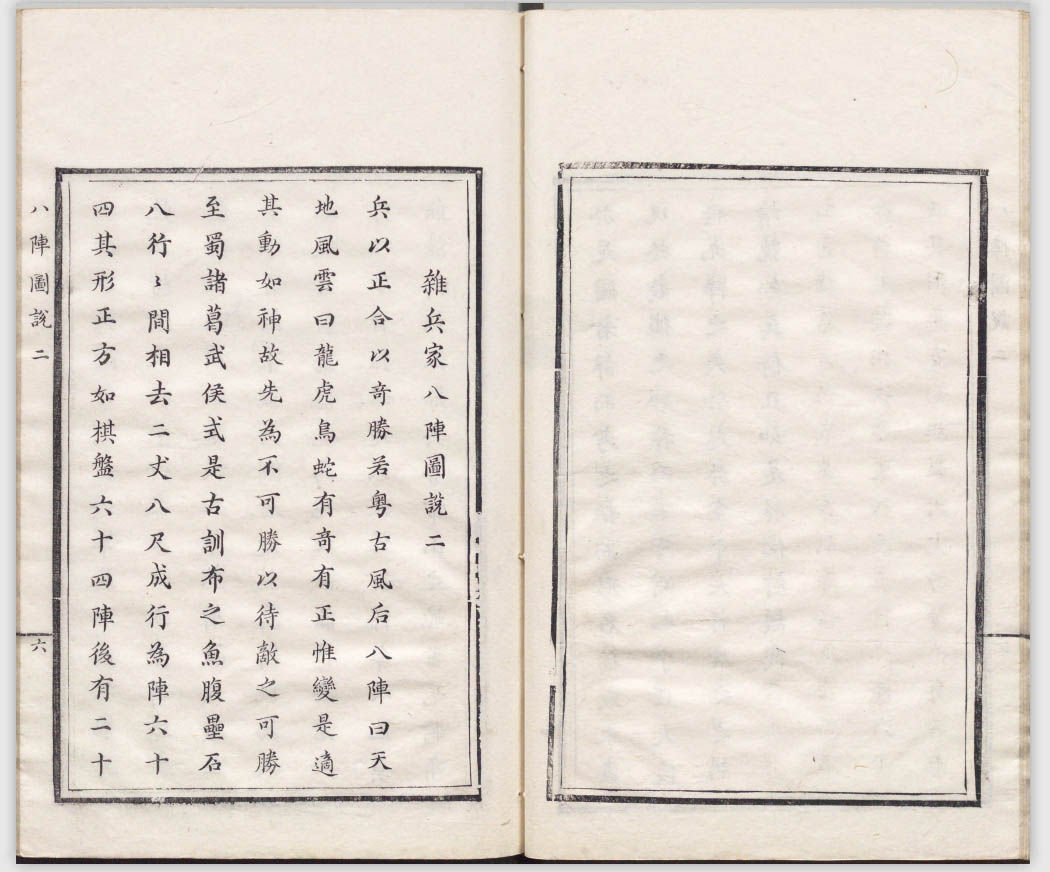 雜兵家八陣圖說二
兵以正合以竒勝若粤古風后八陣曰天
地風雲曰龍虎鳥蛇有竒有正惟變是適
其動如神故先為不可勝以待敵之可勝
至蜀諸葛武侯式是古訓布之魚腹壘石
八行〻間相去二丈八尺成行為陣六十
四其形正方如棋盤六十四陣後有二十
八陣圖說二
六